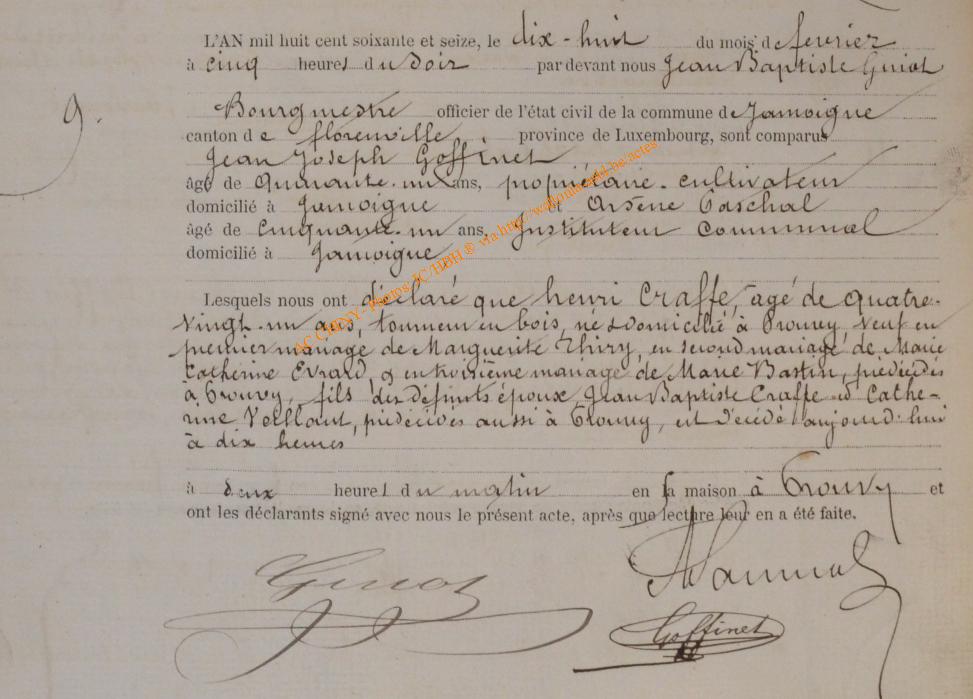 L'AN mil huit cent soixante et seize, le dix-huit du mois de fevrier
à cinq heures du Soir par devant nous Jean Baptiste Guiot
9.
Bourgmestre officier de l'état civil de la commune de Jamoigne
canton de florenville province de Luxembourg, sont comparus
Jean Joseph Goffinet
âgé de quarante-un ans, propriétaire-cultivateur
domicilié à Jamoigne et Arsène
âgé de Cinquante-un ans, Instituteur Communal
domicilié à Jamoigne
AC CHINY - Photos JC/HBH ® via http://wallonica
Lesquels nous ont déclaré que henri Craffe, agé de quatre-
vingt-un ans, tourneur en bois, né & domicilié à Prouvy, veuf en
premier mariage de Marguerite Thiry, en second mariage de Marie
Catherine Evrard, & en troisième mariage de Marie Bastin, prédécédés
à Prouvy, fils des défunts époux, Jean Baptiste Craffe et Cathe-
rine prédécédés aussi à Prouvy, est décédé aujourd'hui
à dix heures
à deux heures du matin en sa maison à Prouvy et
ont les déclarants signé avec nous le présent acte, après que lecture leur en a été faite.
Guiot
Goffinet